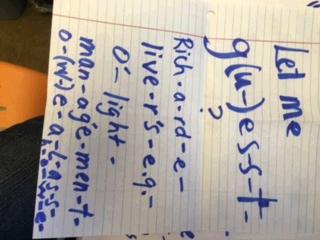 Let me
g(u-)e-s-s-t-
?
Rich-a-rd-e-
live-r's-e.g.-
o'- light-
man-age-men-t-
o-(w)-e-a-l-as-s-